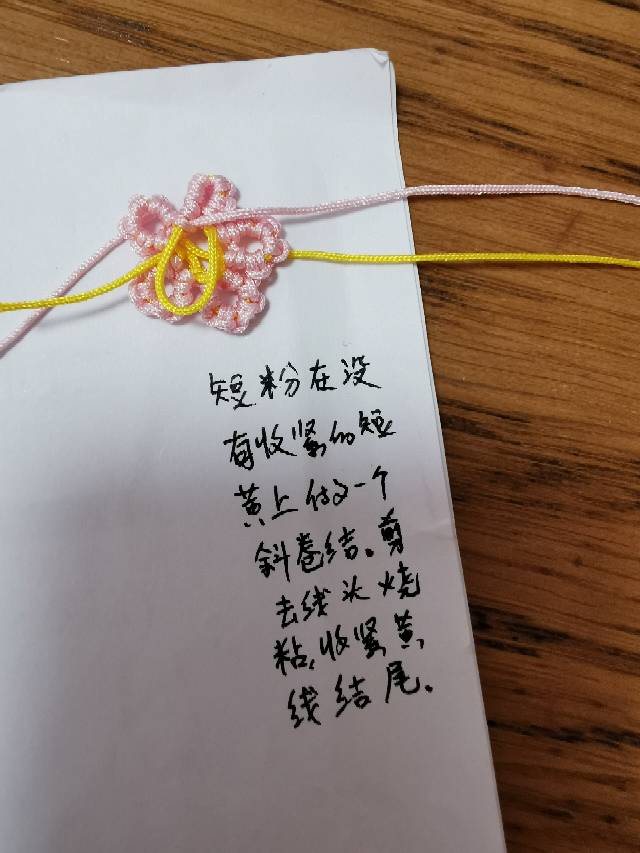 短粉在没
有收紧的短
黄上做一个
斜卷结。剪
去线头烧
粘,收紧黄
线结尾。